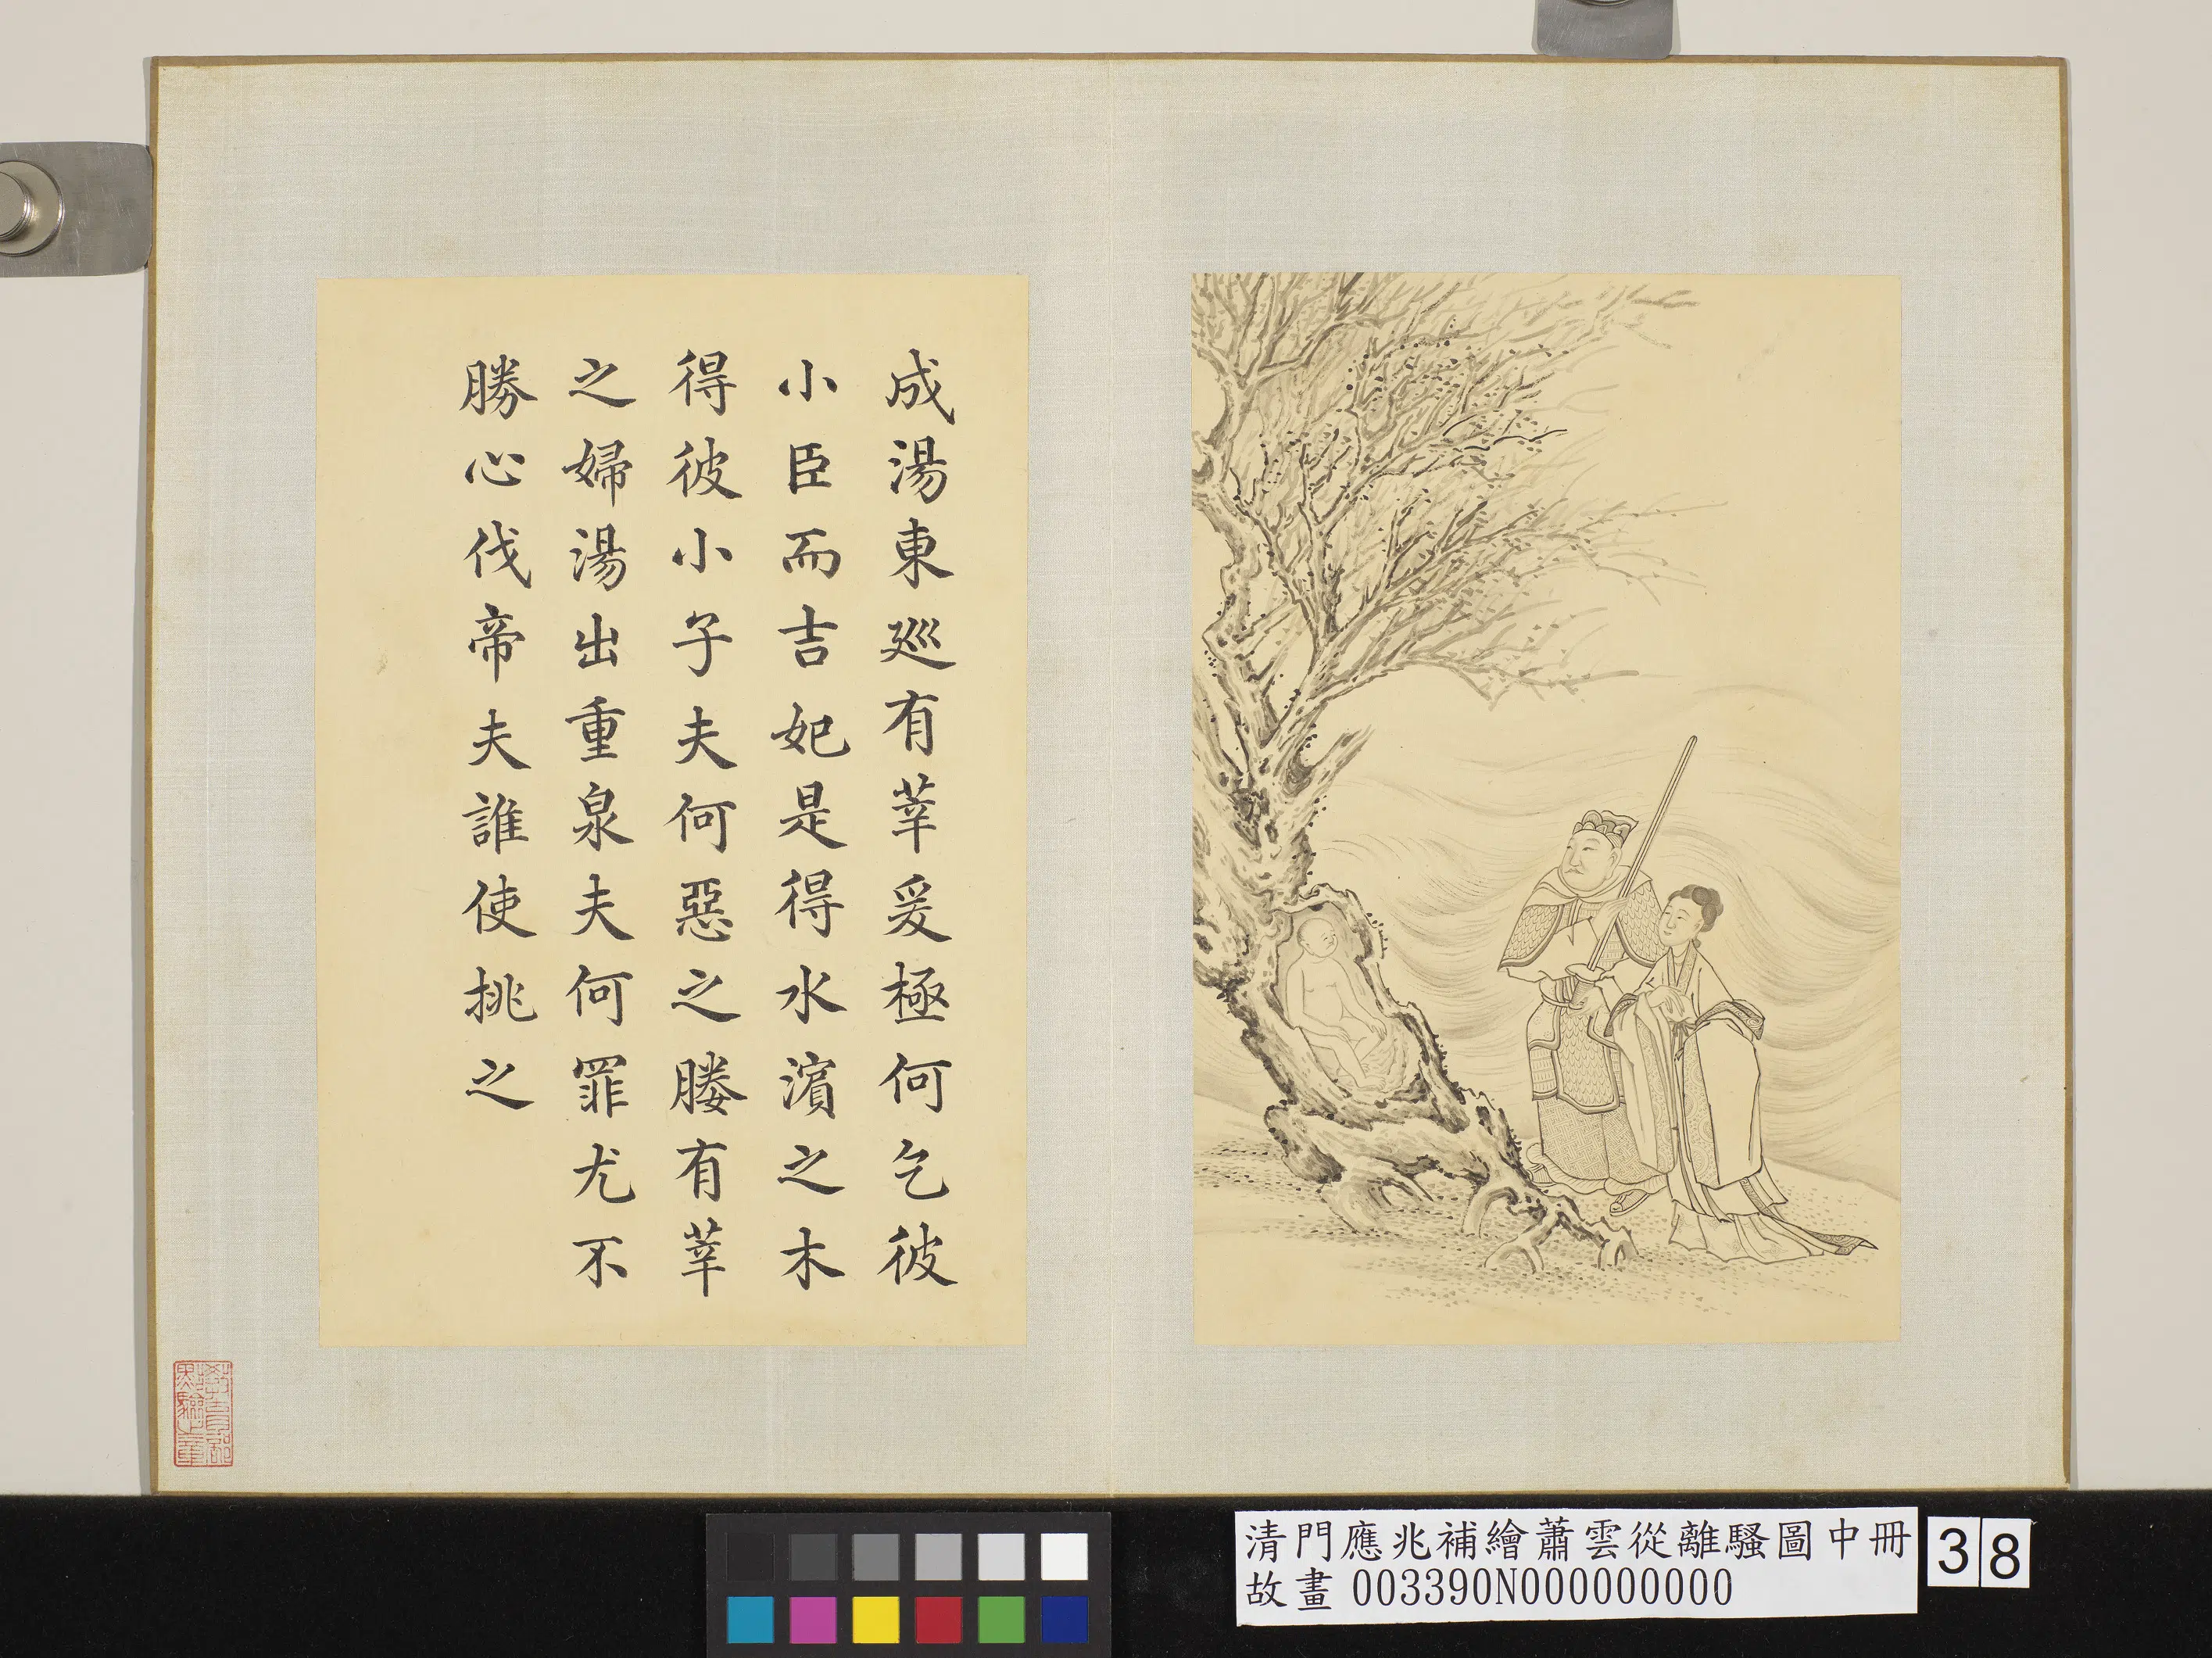 成湯東巡有莘爰極何乞彼
小臣而吉妃是得水濱之木
得彼小子夫何惡之媵有莘
之婦湯出重泉夫何罪尤不
勝心伐帝夫誰使挑之
清門應兆補繪蕭雲從離騷圖中冊
故畫 003390N000000000
38